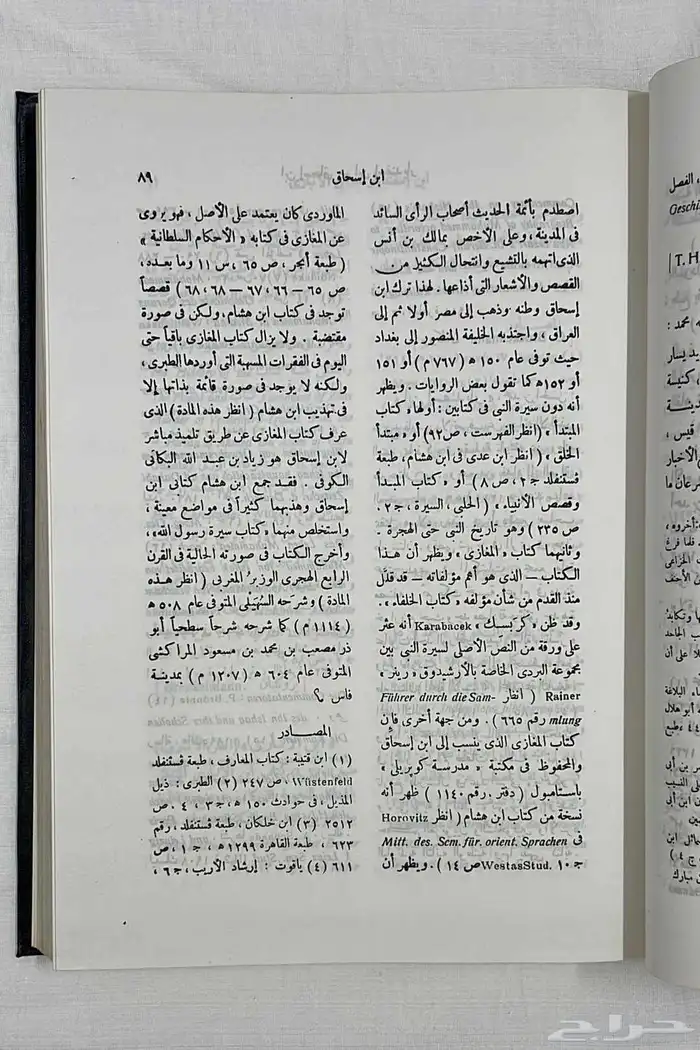 ابن إسحاق
٨٩
اصطدم بأئمة الحديث أصحاب الرأى السائد
فى المدينة، وعلى الأخص بمالك بن أنس
الذى اتهمه بالتشيع وانتحال الكثير من
القصص والأشعار التى أذاعها. لهذا ترك ابن
إسحاق وطنه وذهب إلى مصر أولا ثم إلى
العراق، واجتذبه الخليفة المنصور إلى بغداد
حيث توفى عام ١٥٠ ه (٧٦٧ م) أو ١٥١
أو ١٥٢ ه كما تقول بعض الروايات. ويظهر
أنه دون سيرة النبى فى كتابين: أولها «كتاب
المبتدأ» (انظر الفهرست، ص ٩٢) أو «مبتدأ
الخلق» (انظر ابن عدى فى ابن هشام، طبعة
فستنفلد ج ٢، ص ٨) أو «كتاب المبدأ
وقصص الأنبياء» (الحلبى، السيرة، ج ٢،
ص ٢٣٥) وهو تاريخ النبى حتى الهجرة.
وثانيهما كتاب «المغازى» ويظهر أن هذا
الكتاب — الذى هو أهم مؤلفاته — قد قلل
منذ القدم من شأن مؤلفه «كتاب الخلفاء».
وقد ظن «كربسك» Karabacek أنه عثر
على ورقة من النص الأصلى لسيرة النبى بين
مجموعة البردى الخاصة بالأرشيدوق «رينر»
Rainer (انظر Führer durch die Sam-
mlung رقم ٦٦٥). ومن جهة أخرى فإن
كتاب المغازى الذى ينسب إلى ابن إسحاق
والمحفوظ فى مكتبة «مدرسة كوبريلى»
باستامبول (دفتر، رقم ١١٤٠) ظهر أنه
نسخة من كتاب ابن هشام (انظر Horovitz
فى Mitt. des. Sem. für. orient. Sprachen
ج ١٠ Westas Stud. ص ١٤). ويظهر أن
الماوردى كان يعتمد على الأصل، فهو يروى
عن المغازى فى كتابه «الأحكام السلطانية»
(طبعة أنجر، ص ٦٥، س ١١ وما بعده،
ص ٦٥ — ٦٦، ٦٧ — ٦٨، ٦٨) قصصاً
توجد فى كتاب ابن هشام، ولكن فى صورة
مقتضبة. ولا يزال كتاب المغازى باقياً حتى
اليوم فى الفقرات المسهبة التى أوردها الطبرى،
ولكنه لا يوجد فى صورة قائمة بذاتها إلا
فى تهذيب ابن هشام (انظر هذه المادة) الذى
عرف كتاب المغازى عن طريق تلميذ مباشر
لابن إسحاق هو زياد بن عبد الله البكائى
الكوفى. فقد جمع ابن هشام كتابى ابن
إسحاق وهذبهما كثيراً فى مواضع معينة،
واستخلص منهما «كتاب سيرة رسول الله»،
وأخرج الكتاب فى صورته الحالية فى القرن
الرابع الهجرى الوزير المغربى (انظر هذه
المادة) وشرحه السهيلى المتوفى عام ٥٠٨ ه
(١١١٤ م) كما شرحه شرحاً سطحياً أبو
ذر مصعب بن محمد بن مسعود المراكشى
المتوفى عام ٦٠٤ ه (١٢٠٧ م) بمدينة
فاس؟
المصادر
(١) ابن قتيبة: كتاب المعارف، طبعة فستنفلد
Wüstenfeld، ص ٢٤٧ (٢) الطبرى: ذيل
المذيل، فى حوادث ١٥٠ ه، ج ٣، ٤، ص
٢٥١٢ (٣) ابن خلكان، طبعة فستنفلد، رقم
٦٢٣، طبعة القاهرة ١٢٩٩ ه، ج ١، ص
٦١١ (٤) ياقوت: إرشاد الأريب، ج ٦،
، الفصل
Geschi
T. H
حراج